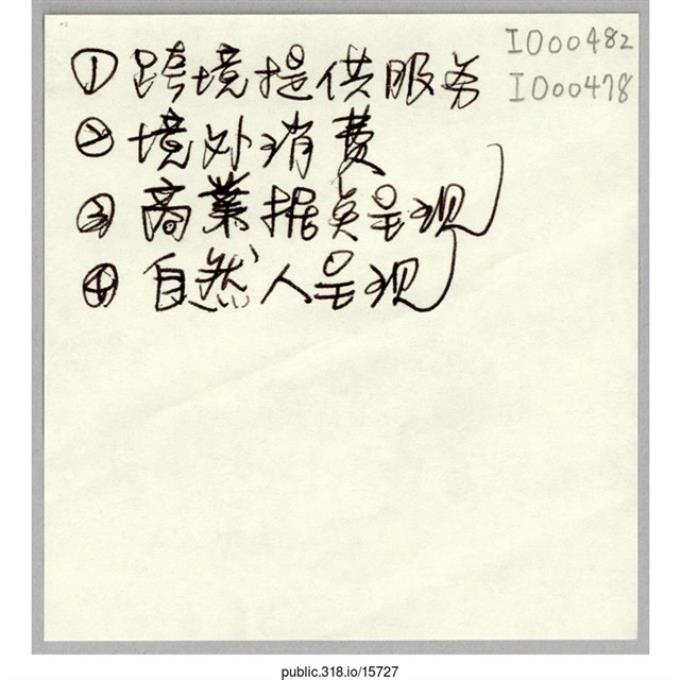 I000482
I000478
①跨境提供服务
②境外消費
③商業据点呈现
④自然人呈现
public.318.io/15727